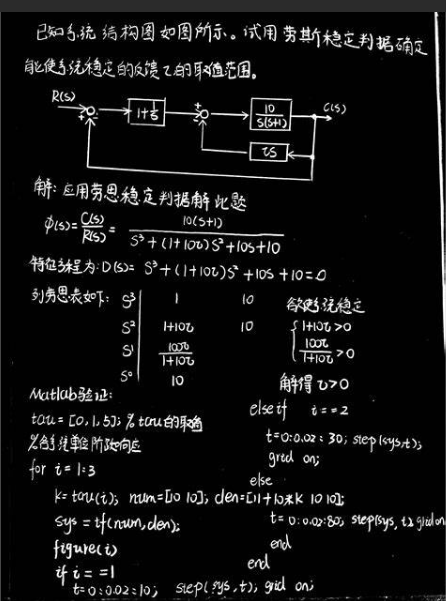 已知系统结构图如图所示。试用劳斯稳定判据确定
能使系统稳定的反馈τ的取值范围。
R(s) + - 1+1/s + - 10/s(s+1) C(s)
τs
解:应用劳思稳定判据解此题
φ(s)=C(s)/R(s)=10(s+1)/S³+(1+10τ)S²+10S+10
特征方程为:D(s)= S³+(1+10τ)S²+10S+10=0
列劳思表如下: S³ 1 10 欲使系统稳定
S² 1+10τ 10 { 1+10τ>0
S¹ 100τ/1+10τ 100τ/1+10τ>0
S⁰ 10 解得τ>0
Matlab验证:
tau=[0,1,5]; %tau的取值
%系统单位阶跃响应
for i=1:3
k=tau(i); num=[10 10]; den=[1 1+10*k 10 10];
sys=tf(num,den);
figure(i)
if i==1
t=0:0.02:10; step(sys,t); grid on;
else if i==2
t=0:0.02:30; step(sys,t);
grid on;
else
t=0:0.02:80; step(sys,t); grid on
end
end